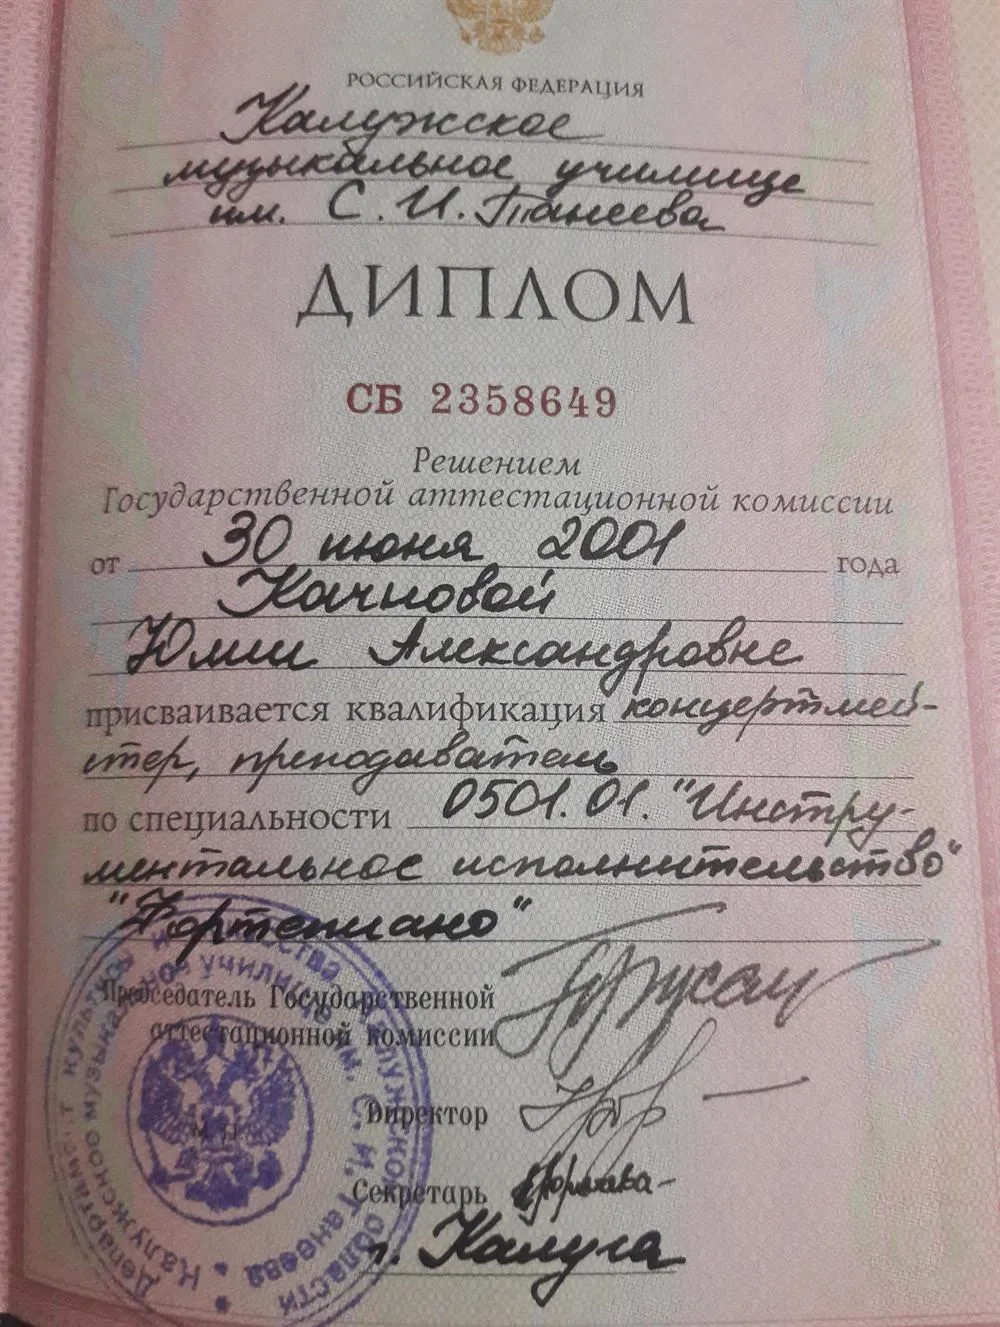 РОССИЙСКАЯ ФЕДЕРАЦИЯ
Калужское
музыкальное училище
им. С. И. Танеева
ДИПЛОМ
СБ 2358649
Решением
Государственной аттестационной комиссии
от 30 июня 2001 года
Качновой
Юлии Александровне
присваивается квалификация концертмей-
стер, преподаватель
по специальности 0501.01. "Инстру-
ментальное исполнительство"
"Фортепиано"
Председатель Государственной
аттестационной комиссии
Директор
Секретарь
г. Калуга
Департамент культуры и искусства Калужской области
Калужское музыкальное училище им. С. И. Танеева